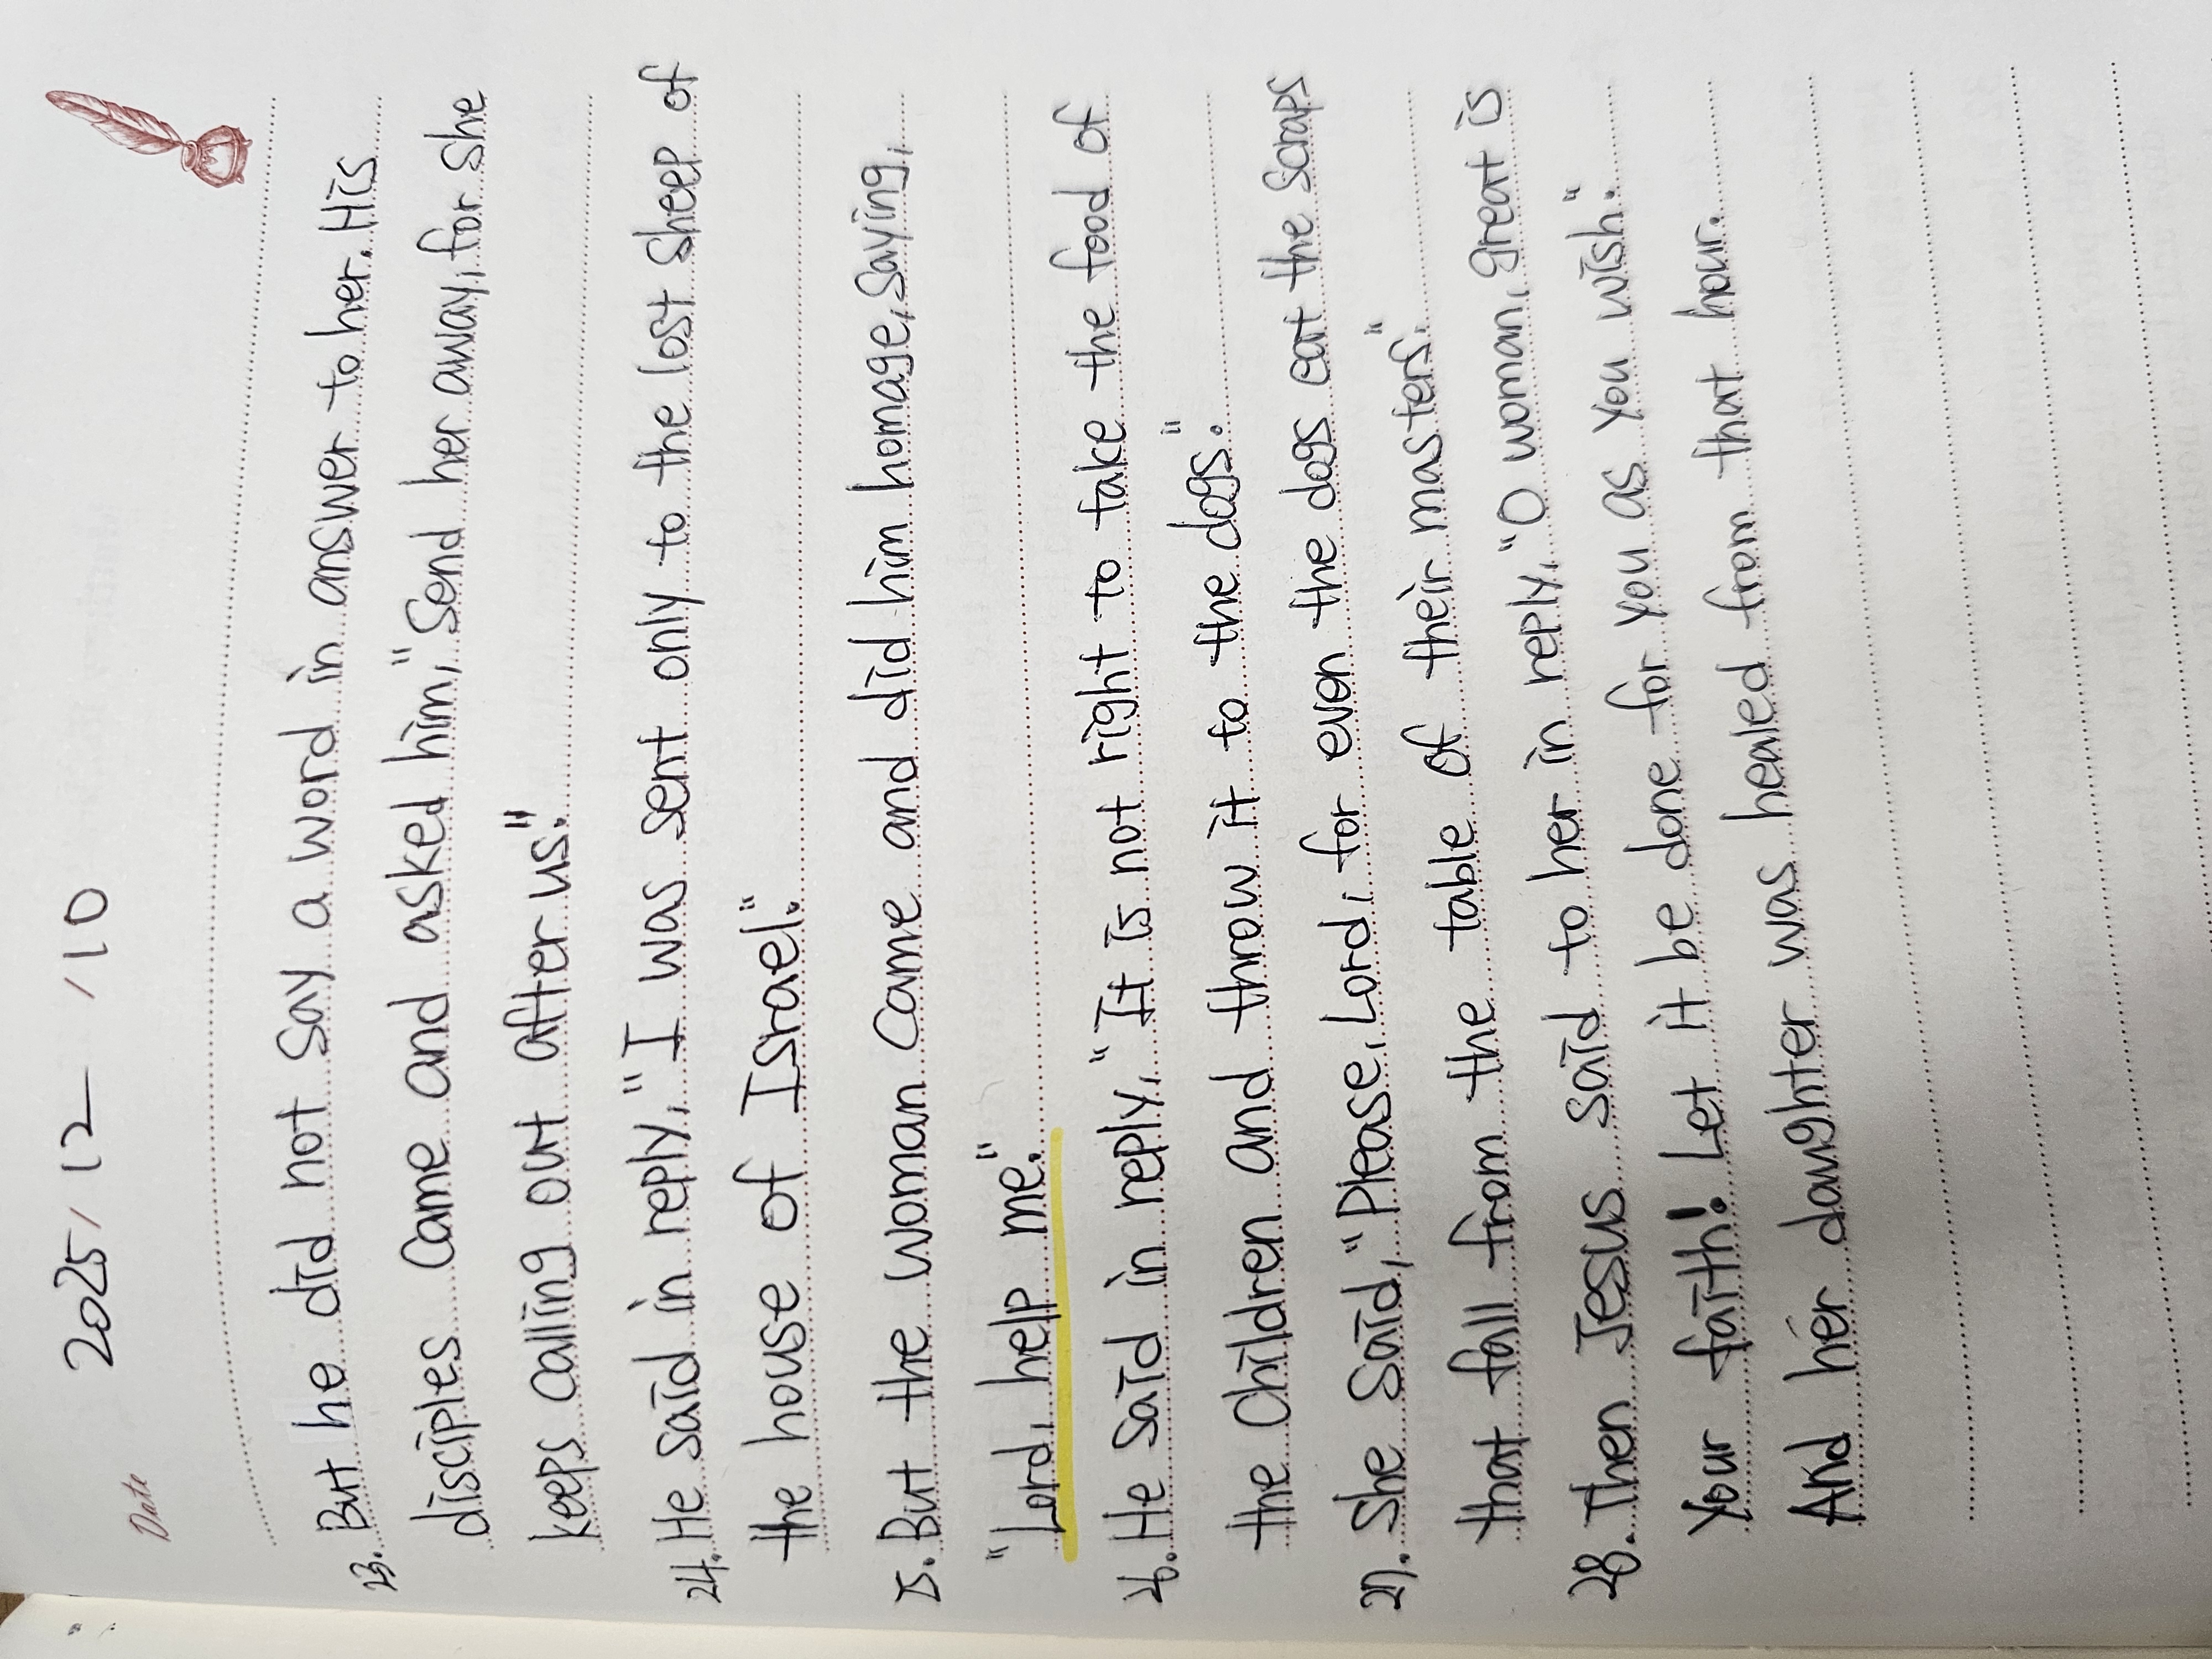 Date 2025/12/10
23. But he did not say a word in answer to her. His
disciples came and asked him, "Send her away, for she
keeps calling out after us."
24. He said in reply, "I was sent only to the lost sheep of
the house of Israel."
5. But the woman came and did him homage, saying,
"Lord, help me."
26. He said in reply, "It is not right to take the food of
the children and throw it to the dogs."
27. She said, "Please, Lord, for even the dogs eat the scraps
that fall from the table of their masters."
28. Then Jesus said to her in reply, "O woman, great is
your faith! Let it be done for you as you wish."
And her daughter was healed from that hour.